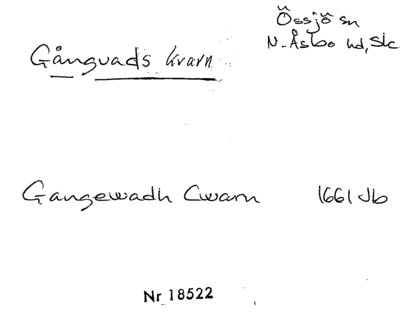 Össjö sn
N. Åsbo hd, Sk
Gångvads kvarn
Gangewadh Cwarn 1661 Jb
Nr 18522